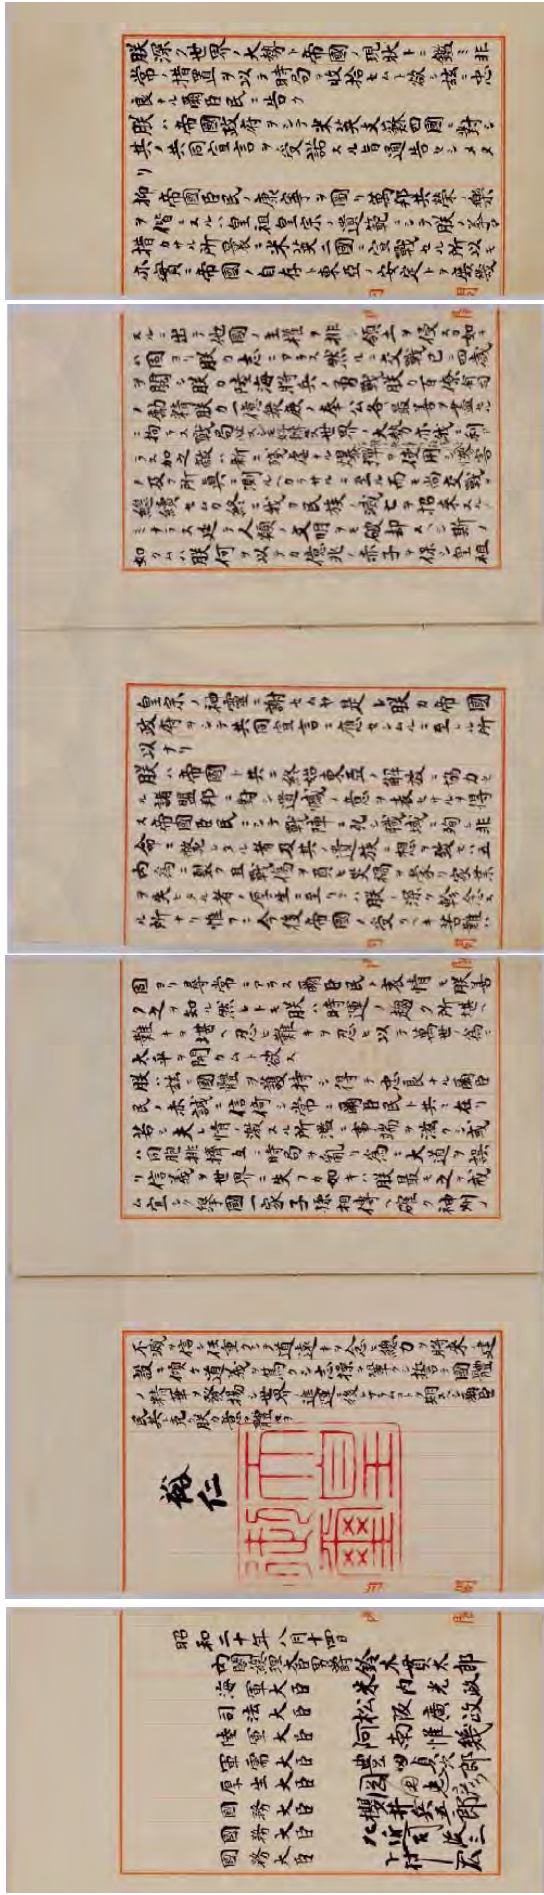 朕深ク世界ノ大勢ト帝國ノ現狀トニ鑑ミ非
常ノ措置ヲ以テ時局ヲ收拾セムト欲シ茲ニ忠
良ナル爾臣民ニ告ク
朕ハ帝國政府ヲシテ米英支蘇四國ニ對シ
其ノ共同宣言ヲ受諾スル旨通告セシメタ
リ
抑帝國臣民ノ康寧ヲ圖リ萬邦共榮ノ樂
ヲ偕ニスルハ皇祖皇宗ノ遺範ニシテ朕ノ拳々
措カサル所曩ニ米英二國ニ宣戰セル所以モ
亦實ニ帝國ノ自存ト東亞ノ安定トヲ庶幾
スルニ出テ他國ノ主權ヲ排シ領土ヲ侵スカ如キ
ハ固ヨリ朕カ志ニアラス然ルニ交戰已ニ四歲
ヲ閱シ朕カ陸海將兵ノ勇戰朕カ百僚有司
ノ勵精朕カ一億衆庶ノ奉公各最善ヲ盡セル
ニ拘ラス戰局必スシモ好轉セス世界ノ大勢亦我ニ利ア
ラス加之敵ハ新ニ殘虐ナル爆彈ヲ使用シテ頻ニ無辜ヲ殺傷シ慘害
ノ及フ所眞ニ測ルヘカラサルニ至ル而モ尚交戰ヲ
繼續セムカ終ニ我カ民族ノ滅亡ヲ招來スルノ
ミナラス延テ人類ノ文明ヲモ破却スヘシ斯ノ
如クムハ朕何ヲ以テカ億兆ノ赤子ヲ保シ皇祖
皇宗ノ神靈ニ謝セムヤ是レ朕カ帝國
政府ヲシテ共同宣言ニ應セシムルニ至レル所
以ナリ
朕ハ帝國ト共ニ終始東亞ノ解放ニ協力セ
ル諸盟邦ニ對シ遺憾ノ意ヲ表セサルヲ得
ス帝國臣民ニシテ戰陣ニ死シ職域ニ殉シ非
命ニ斃レタル者及其ノ遺族ニ想ヲ致セハ五
内為ニ裂ク且戰傷ヲ負ヒ災禍ヲ蒙リ家業
ヲ失ヒタル者ノ厚生ニ至リテハ朕ノ深ク軫念ス
ル所ナリ惟フニ今後帝國ノ受クヘキ苦難ハ
固ヨリ尋常ニアラス爾臣民ノ衷情モ朕善
ク之ヲ知ル然レトモ朕ハ時運ノ趨ク所堪ヘ
難キヲ堪ヘ忍ヒ難キヲ忍ヒ以テ萬世ノ為ニ
太平ヲ開カムト欲ス
朕ハ茲ニ國體ヲ護持シ得テ忠良ナル爾臣
民ノ赤誠ニ信倚シ常ニ爾臣民ト共ニ在リ
若シ夫レ情ノ激スル所濫ニ事端ヲ滋クシ或
ハ同胞排擠互ニ時局ヲ亂リ為ニ大道ヲ誤
リ信義ヲ世界ニ失フカ如キハ朕最モ之ヲ戒
ム宜シク擧國一家子孫相傳ヘ確ク神州ノ
不滅ヲ信シ任重クシテ道遠キヲ念ヒ總力ヲ將來ノ建
設ニ傾ケ道義ヲ篤クシ志操ヲ鞏クシ誓テ國體
ノ精華ヲ發揚シ世界ノ進運ニ後レサラムコトヲ期スヘシ爾臣
民其レ克ク朕カ意ヲ體セヨ
裕仁
天皇御璽
昭和二十年八月十四日
内閣總理大臣男爵 鈴木貫太郎
海軍大臣 米内光政
司法大臣 松阪廣政
陸軍大臣 阿南惟幾
軍需大臣 豊田貞次郎
厚生大臣 岡田忠彦
國務大臣 櫻井兵五郎
國務大臣 左近司政三
國務大臣 下村宏